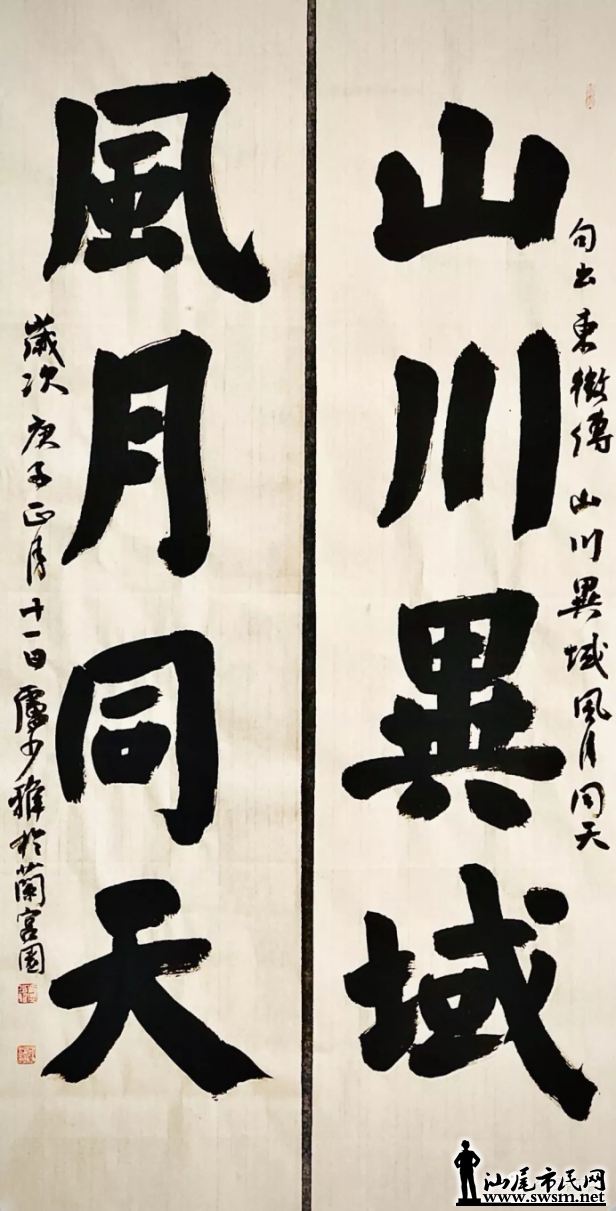 山川異域
句出東徵傳 山川異域風月同天
風月同天
歲次庚子正月十一日盧少雅於蘭宮園
汕尾市民网
www.swsm.net